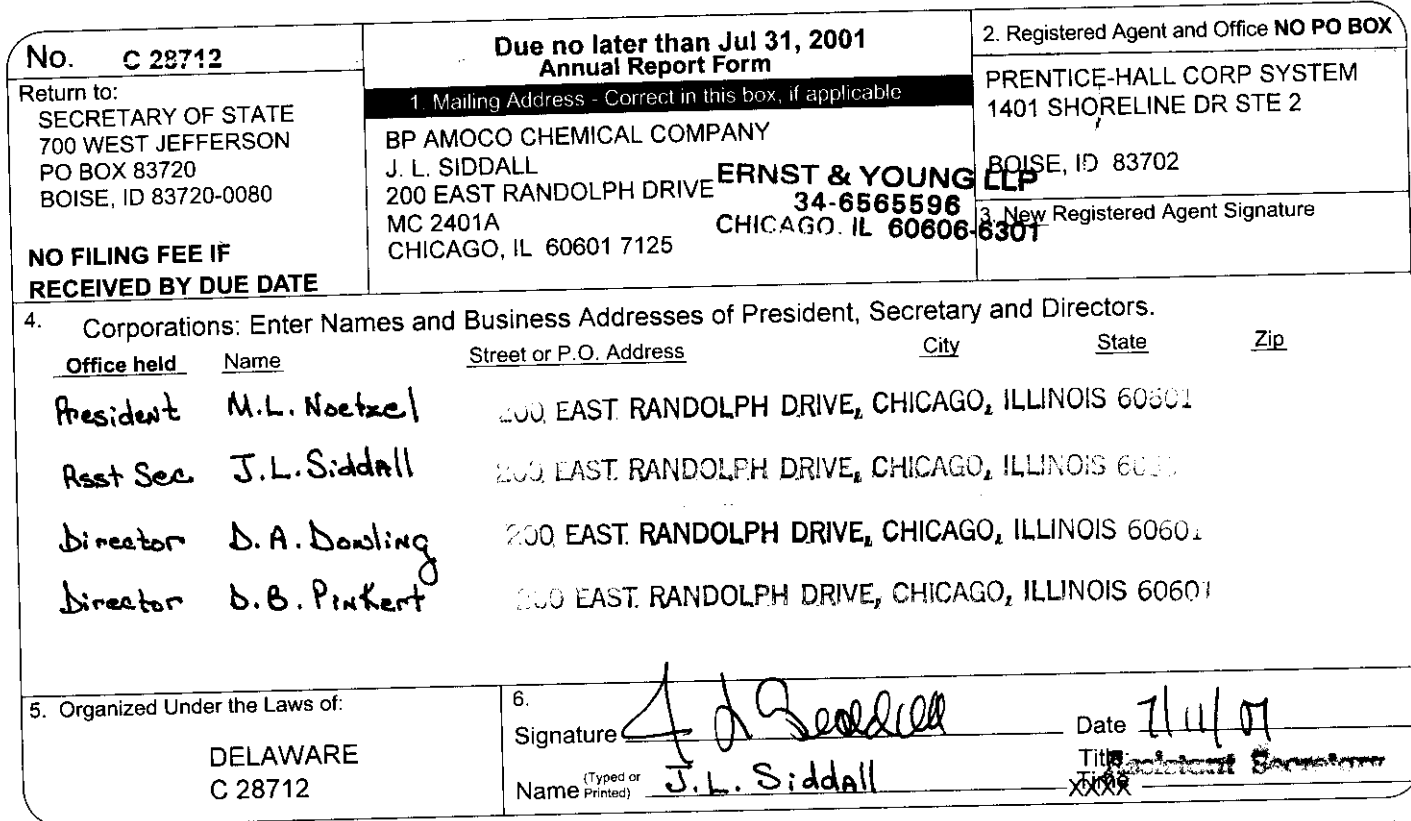 No. C 28712
Return to:
SECRETARY OF STATE
700 WEST JEFFERSON
PO BOX 83720
BOISE, ID 83720-0080
NO FILING FEE IF
RECEIVED BY DUE DATE
Due no later than Jul 31, 2001
Annual Report Form
1. Mailing Address - Correct in this box, if applicable
BP AMOCO CHEMICAL COMPANY
J. L. SIDDALL
200 EAST RANDOLPH DRIVE
MC 2401A
CHICAGO, IL 60601 7125
ERNST & YOUNG LLP
34-6565596
CHICAGO, IL 60606-6301
2. Registered Agent and Office NO PO BOX
PRENTICE-HALL CORP SYSTEM
1401 SHORELINE DR STE 2
BOISE, ID 83702
3. New Registered Agent Signature
4. Corporations: Enter Names and Business Addresses of President, Secretary and Directors.
Office held Name Street or P.O. Address City State Zip
President M.L. Noetzel 200 EAST RANDOLPH DRIVE, CHICAGO, ILLINOIS 60601
Asst Sec. J.L. Siddall 200 EAST RANDOLPH DRIVE, CHICAGO, ILLINOIS
Director D.A. Dowling 200 EAST RANDOLPH DRIVE, CHICAGO, ILLINOIS 60601
Director D.B. Pinkert 200 EAST RANDOLPH DRIVE, CHICAGO, ILLINOIS 60601
5. Organized Under the Laws of:
DELAWARE
C 28712
6.
Signature J L Siddall Date 7/11/01
Name (Typed or Printed) J.L. Siddall Title Assistant Secretary